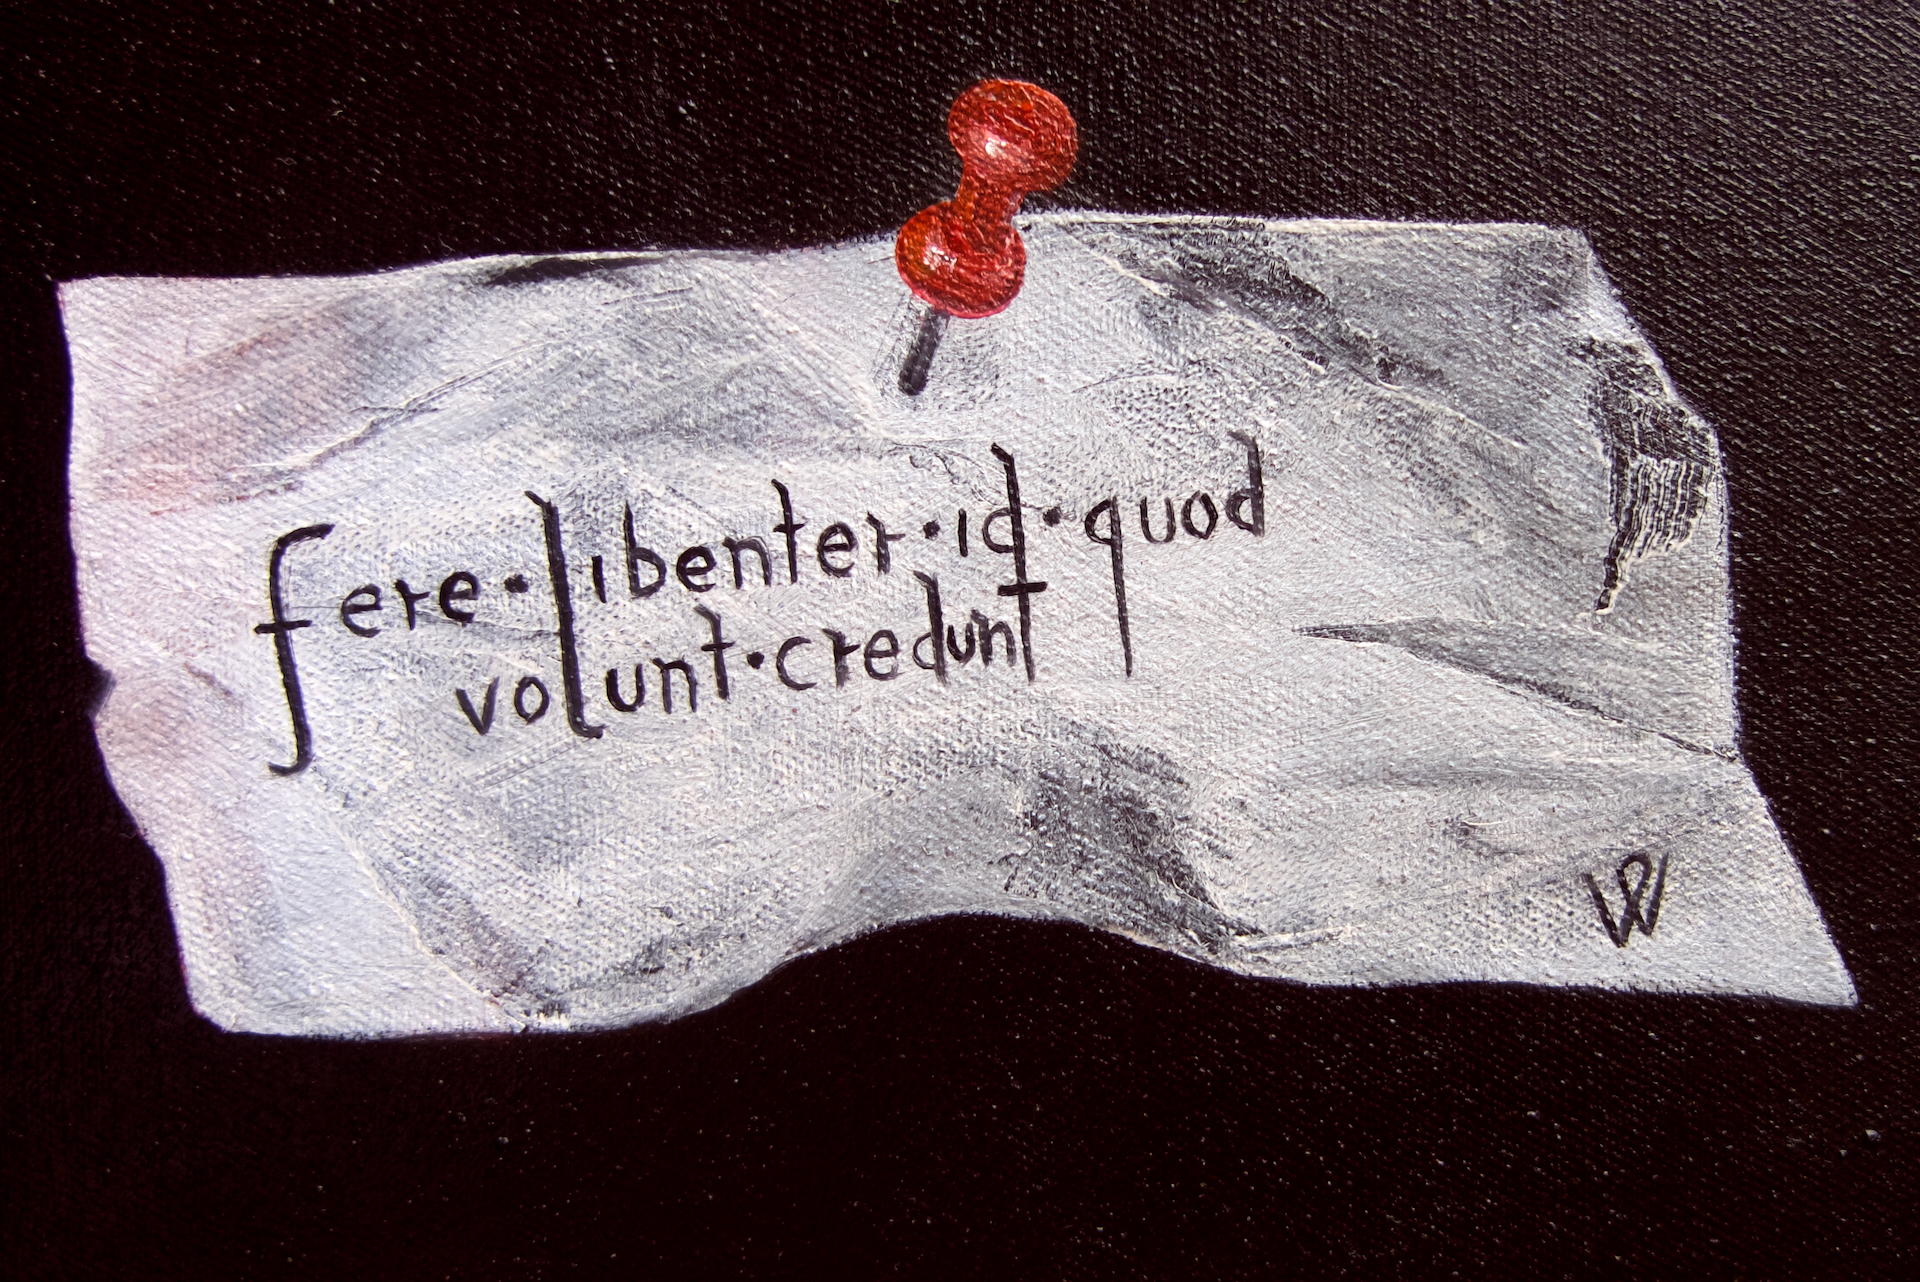 fere·libenter·id·quod
volunt·credunt
W